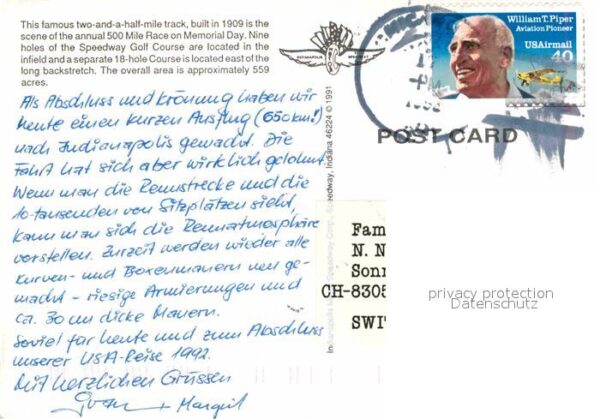 This famous two-and-a-half-mile track, built in 1909 is the
scene of the annual 500 Mile Race on Memorial Day. Nine
holes of the Speedway Golf Course are located in the
infield and a separate 18-hole Course is located east of the
long backstretch. The overall area is approximately 559
acres.
Als Abschluss und Krönung haben wir
heute einen kurzen Ausflug (650 km!)
nach Indianapolis gemacht. Die
Fahrt hat sich aber wirklich gelohnt.
Wenn man die Rennstrecke und die
10-tausenden von Sitzplätzen sieht,
kann man sich die Rennatmosphäre
vorstellen. Zurzeit werden wieder alle
Kurven- und Boxenmauern neu ge-
macht - riesige Armierungen und
ca. 30 cm dicke Mauern.
Soviel für heute und zum Abschluss
unserer USA-Reise 1992.
Mit herzlichen Grüssen
+ Margrit
Speedway, Indiana 46224 © 1991
William T. Piper
Aviation Pioneer
USAirmail
40
POST CARD
Fam
N. N
Sonn
CH-8305
SWI
privacy protection
Datenschutz